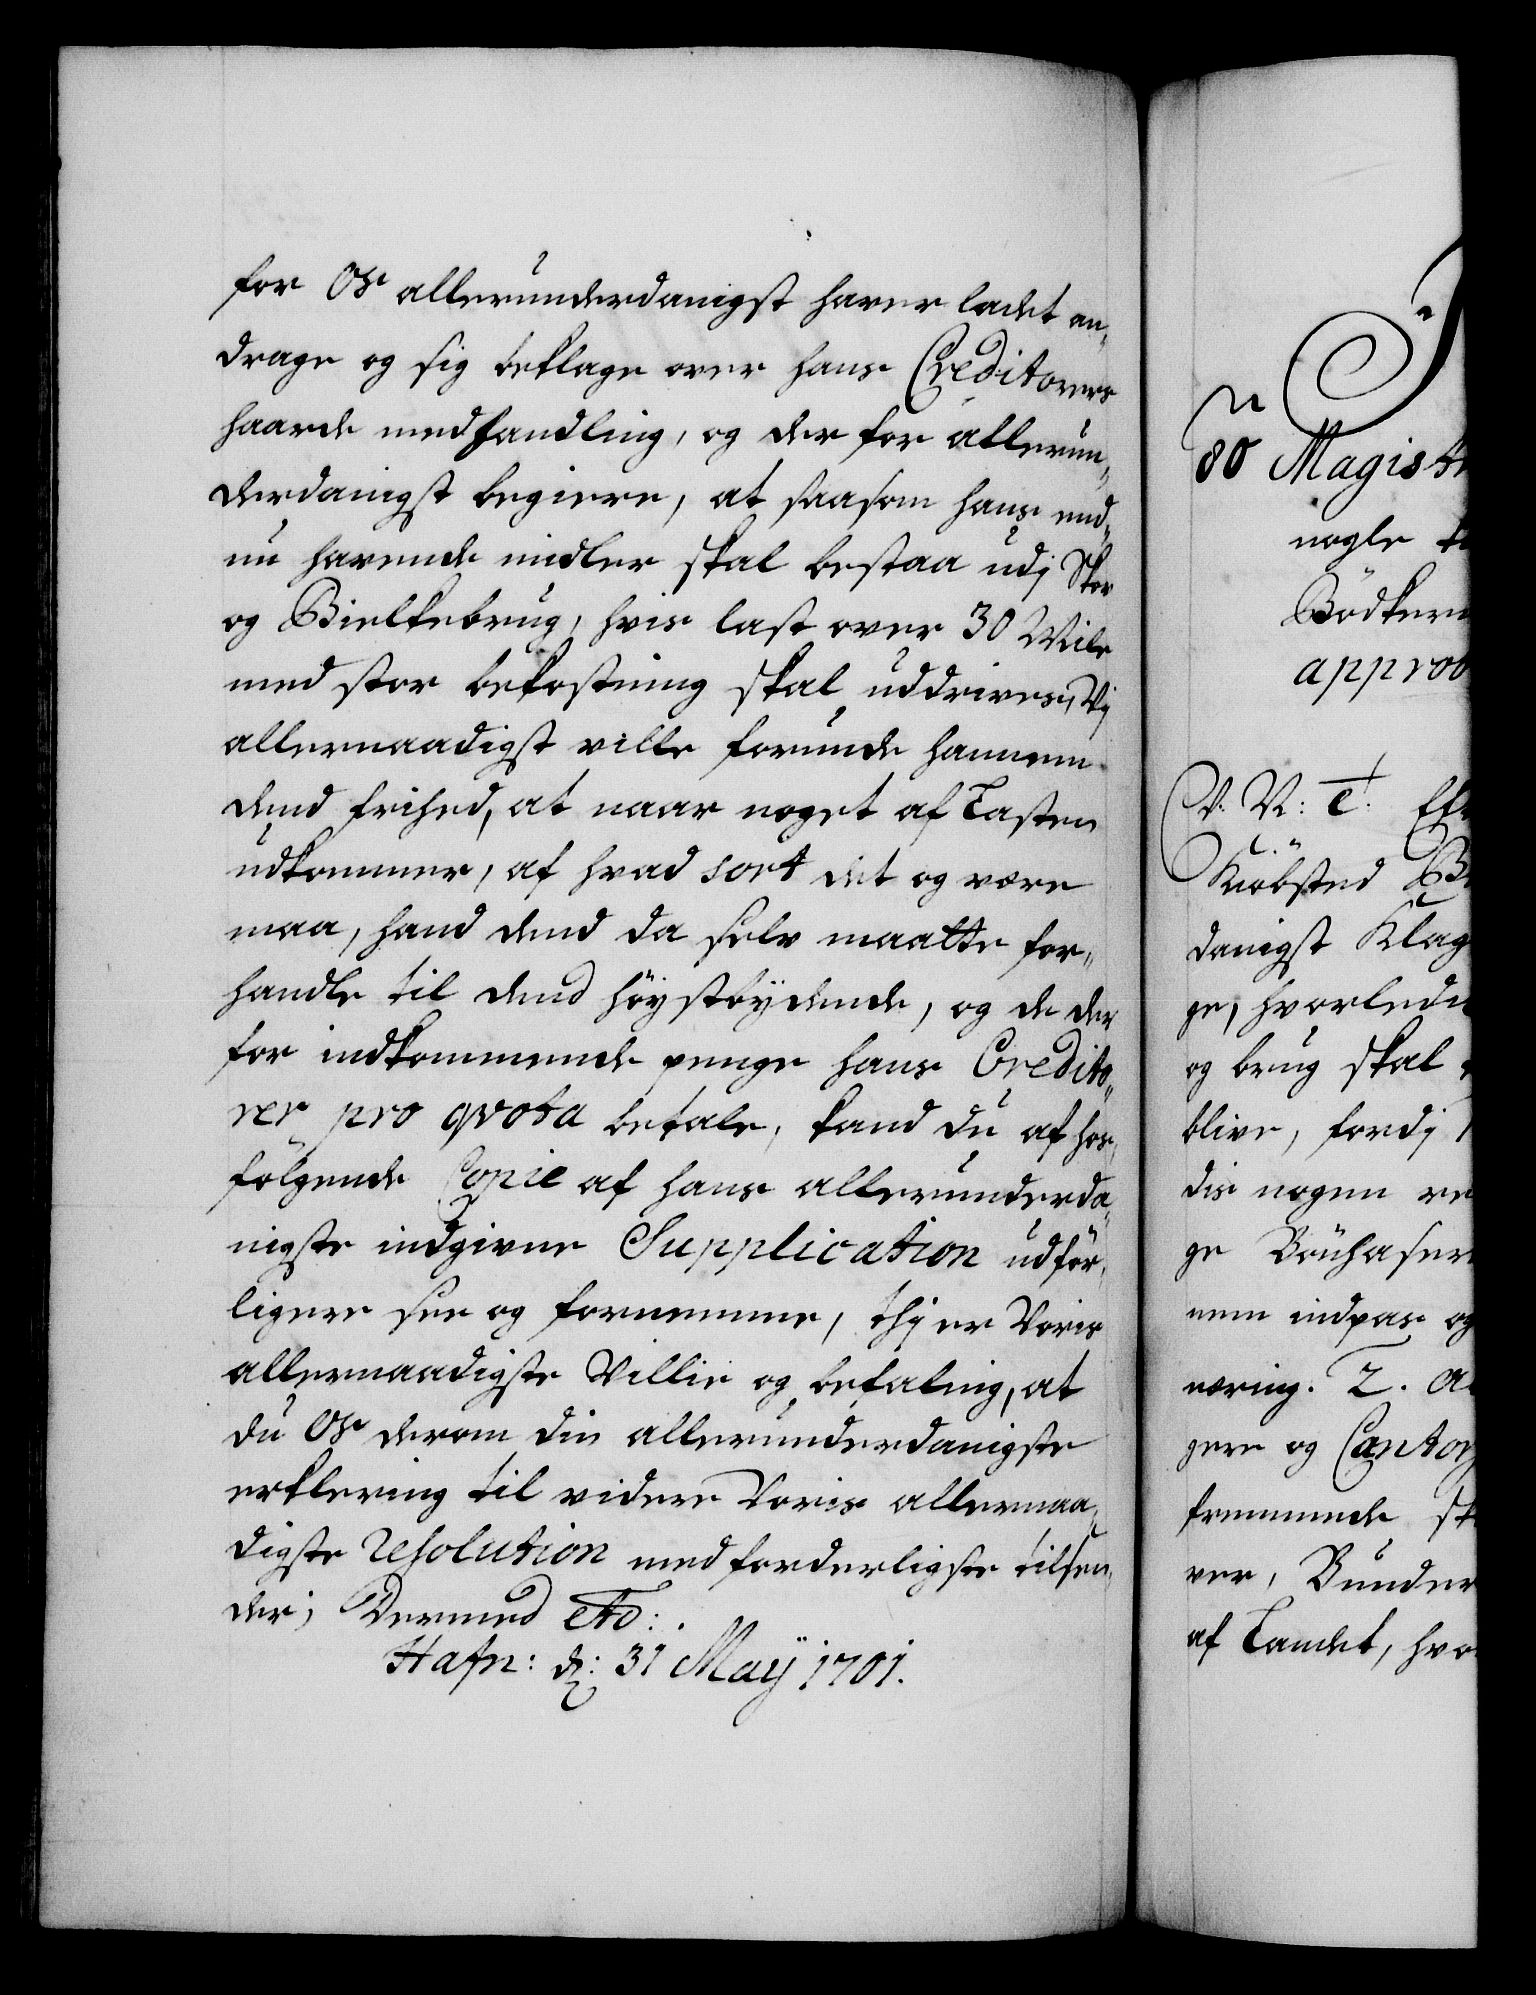 for Os allerunderdanigst haver ladet an-
drage og sig beklage over hans Creditorers
haarde medhandling, og der for allerun-
derdanigst begiere, at saasom hans end-
nu havende midler skal bestaa udj Skov
og Bielkebrug, hvis last over 30 Miile
med stor bekostning skal uddrives, Vj
allernaadigst ville forunde hannem
dend frihed, at naar noget af Lasten
udkommer, af hvad sort det og være
maa, hand dend da selv maatte for-
handle til dend höystbydende, og de der
for indkommende penge hans Credito-
rer pro qvota betale, kand du af hos-
fölgende Copie af hans allerunderda-
nigste indgivne Supplication udför-
ligere see og fornemme, thj er Voris
allernaadigste Villie og befaling, at
du Os derom din allerunderdanigste
erklering til videre Voris allernaa-
digste resolution med forderligste tilsen-
der, Dermed etc:.
Hafn: d: 31 Maÿ 1701.
80 Magist
nogle
Bödker
approb
V. V: C.
Kiöbsted
danigst Klag
ge, hvorlede
og brug skal
blive, fordj
dis nogen
ge Bönhaser
nem indpas og
næring. 2.
gere og Cantor
fremmede
ver, Bunder
af Landet, hvo